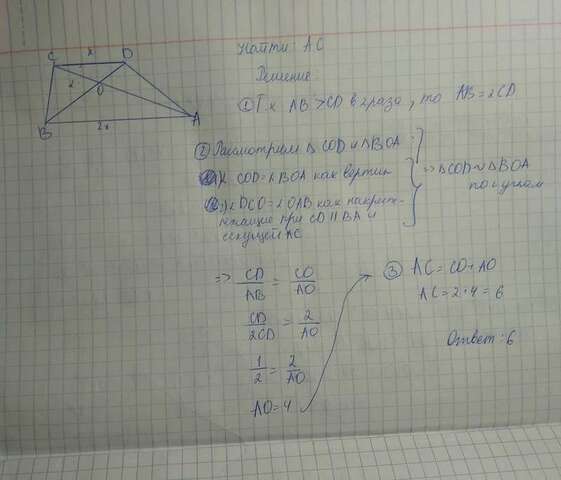 C x D
2
O
B 2x A
Найти: AC
Решение
① Т.к AB > CD в 2 раза, то AB = 2CD
② Рассмотрим Δ COD и Δ BOA:
∠ COD = ∠ BOA как вертик
∠ DCO = ∠ OAB как накрест-
лежащие при CD || BA и
секущей AC
=> Δ COD ~ Δ BOA
по 2 углам
=> CD/AB = CO/AO
CD/2CD = 2/AO
1/2 = 2/AO
AO = 4
③ AC = CO + AO
AC = 2 + 4 = 6
Ответ: 6